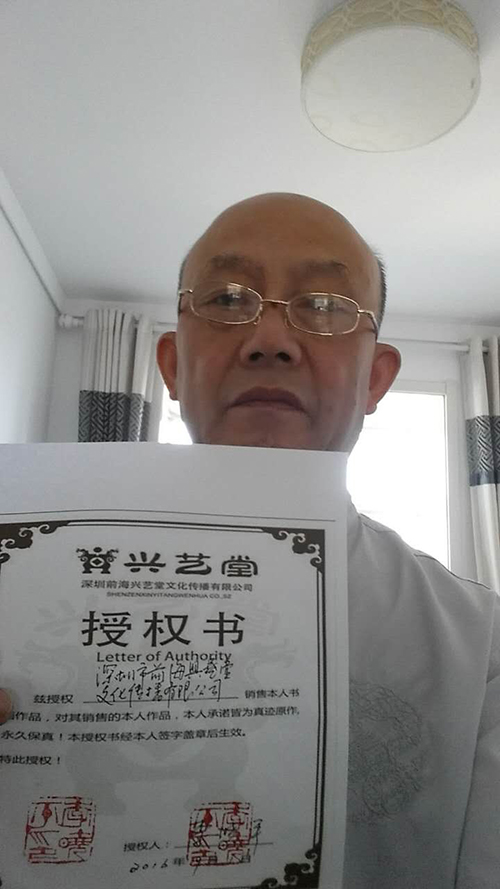 兴艺堂
深圳前海兴艺堂文化传播有限公司
SHENZENXINYITANGWENHUA CO.,SZ
授权书
Letter of Authority
深圳市前海兴艺堂
兹授权 文化传播有限公司 销售本人书
画作品,对其销售的本人作品,本人承诺皆为真迹原作,
永久保真!本授权书经本人签字盖章后生效。
特此授权!
授权人:
2016年 月 日